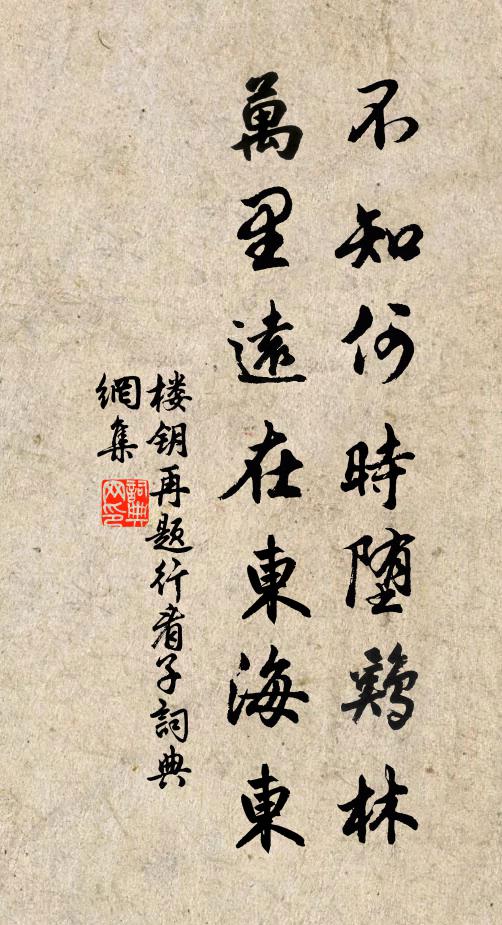 不知何時堕鷄林
萬里遠在東海東
楼钥再题行看子詞典
網集
詞典
网印